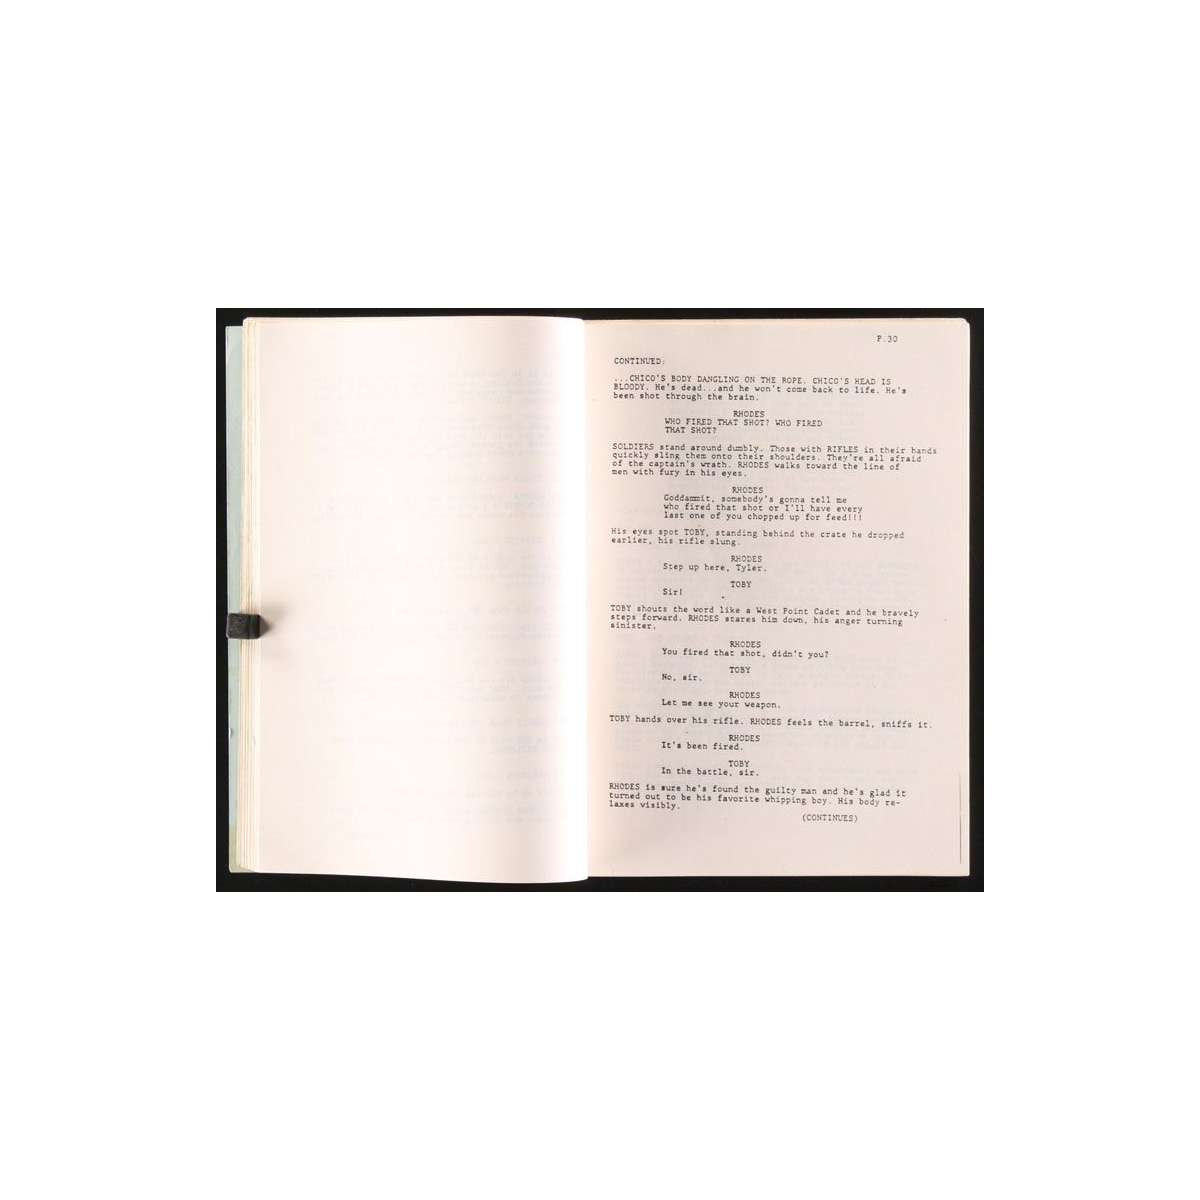 P.30
CONTINUED:
...CHICO'S BODY DANGLING ON THE ROPE. CHICO'S HEAD IS
BLOODY. He's dead...and he won't come back to life. He's
been shot through the brain.
RHODES
WHO FIRED THAT SHOT? WHO FIRED
THAT SHOT?
SOLDIERS stand around dumbly. Those with RIFLES in their hands
quickly sling them onto their shoulders. They're all afraid
of the captain's wrath. RHODES walks toward the line of
men with fury in his eyes.
RHODES
Goddammit, somebody's gonna tell me
who fired that shot or I'll have every
last one of you chopped up for feed!!!
His eyes spot TOBY, standing behind the crate he dropped
earlier, his rifle slung.
RHODES
Step up here, Tyler.
TOBY
Sir!
TOBY shouts the word like a West Point Cadet and he bravely
steps forward. RHODES stares him down, his anger turning
sinister.
RHODES
You fired that shot, didn't you?
TOBY
No, sir.
RHODES
Let me see your weapon.
TOBY hands over his rifle. RHODES feels the barrel, sniffs it.
RHODES
It's been fired.
TOBY
In the battle, sir.
RHODES is sure he's found the guilty man and he's glad it
turned out to be his favorite whipping boy. His body re-
laxes visibly.
(CONTINUES)